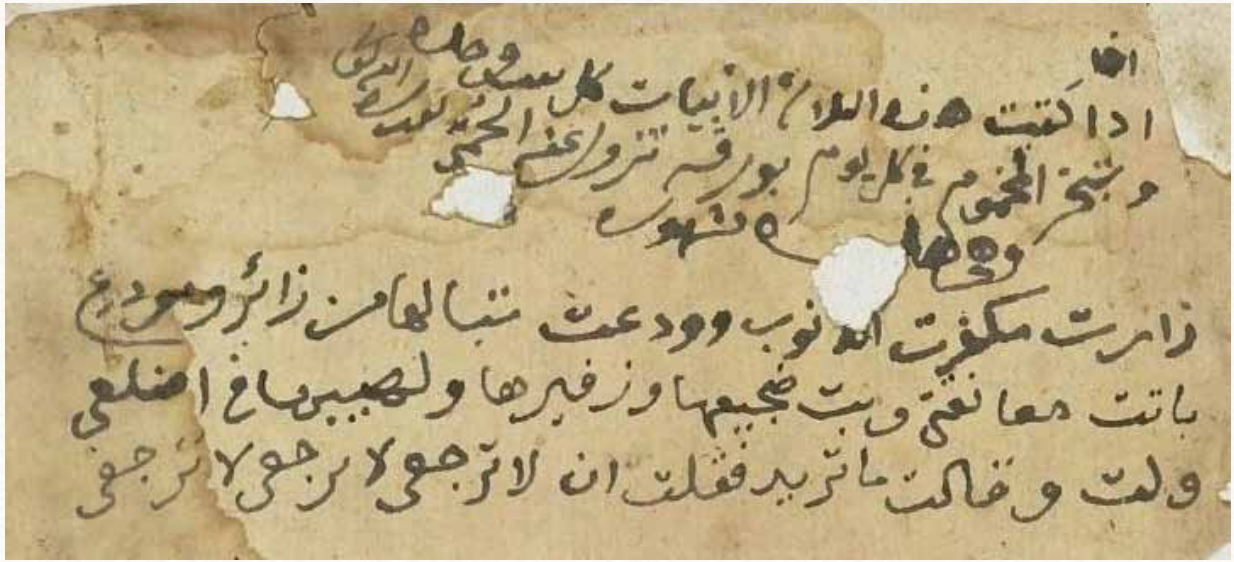 اخا
اذا كتبت هذه الثلاثة الابيات كل بيت وحده
وتبخر المحموم في كل يوم بورقة تزول عنه الحمى
وهي هاذه مشهورة
زارت مكفرت الذنوب وودعت تبا لها من زائر ومودع
باتت معانقتي وبت ضجيعها وزفيرها ولهيبها في اضلعي
ولت وقالت ما تريد فقلت ان لا ترجعي لا ترجعي لا ترجعي